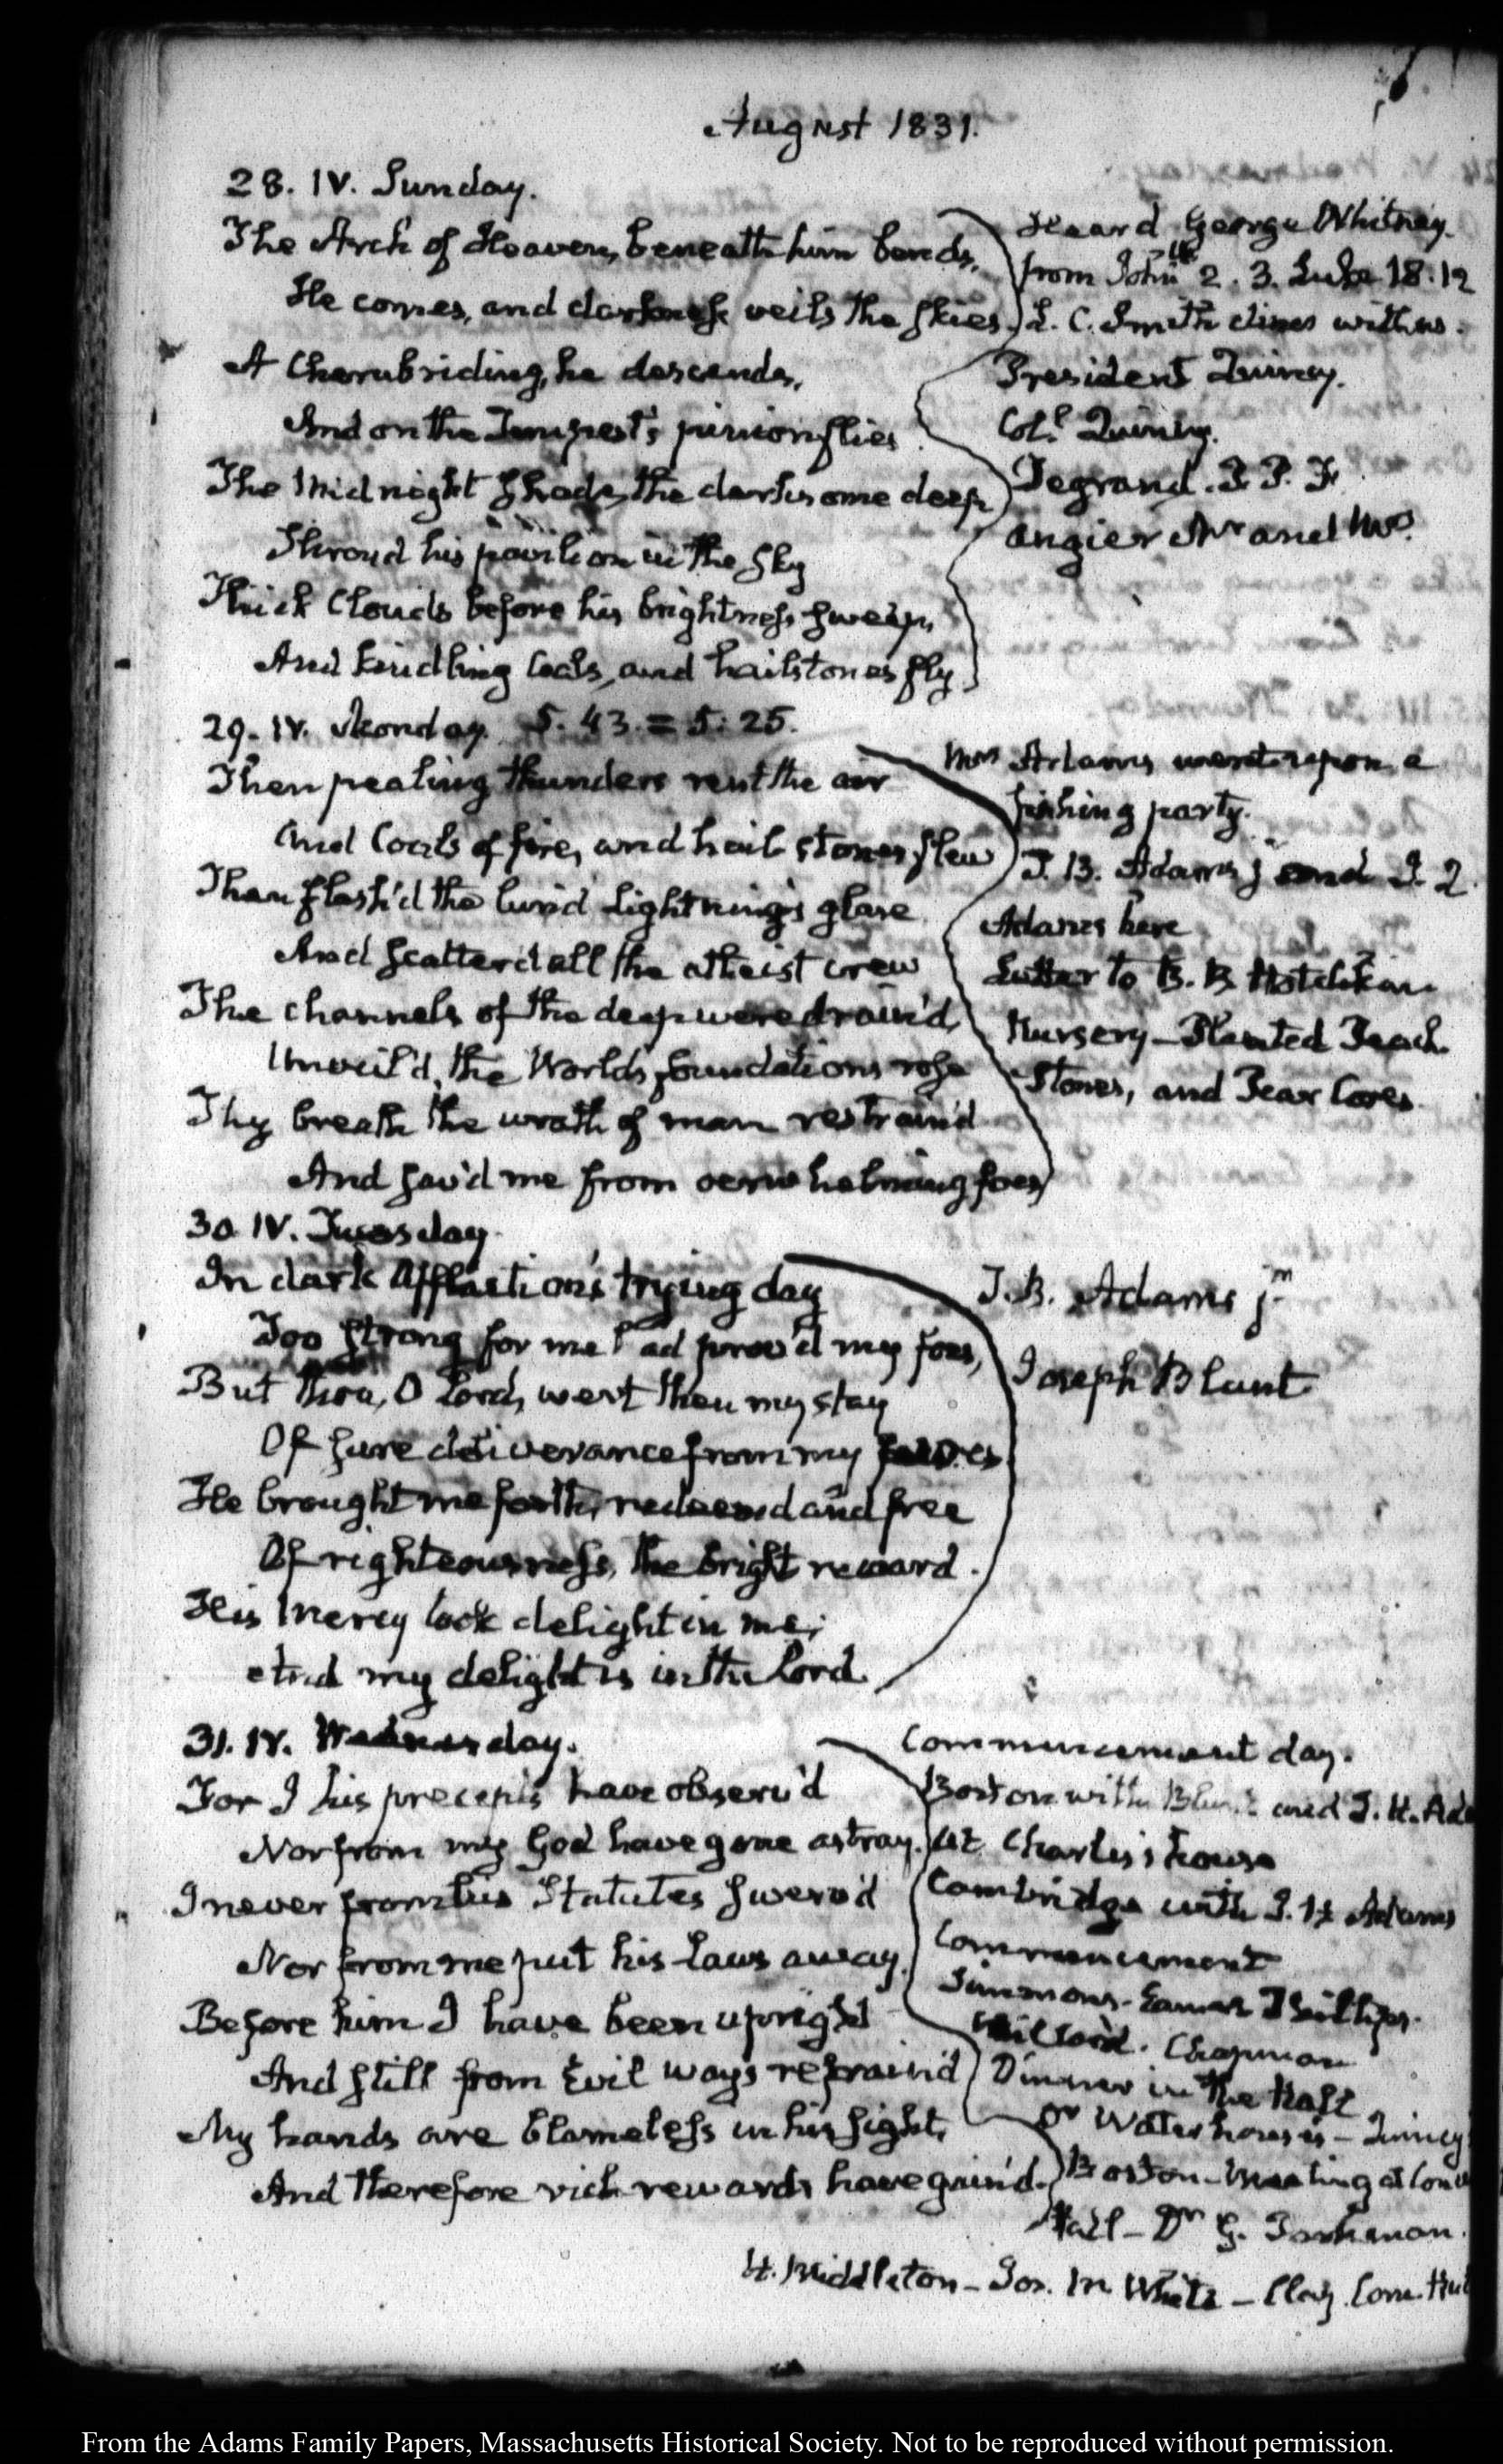 August 1831.
28. IV. Sunday.
The Arch of Heaven, beneath him bends,
He comes, and darkness veils the skies,
A Cherub riding, he descends,
And on the Tempest's pinion flies
The Midnight Shade, the darksome deep
Shroud his pavilion in the sky
Thick Clouds before his brightness sweep,
And kindling Coals, and hailstones fly
Heard George Whitney.
from John 2. 3. Luke 18. 12
L. C. Smith dines with us.
President Quincy.
Col.l Quincy.
Degrand. P. P. F.
Angier Mr and Mrs
29. IV. Monday. 5. 43. = 5: 25.
Then pealing thunders rent the air
And Coals of fire, and hail stones flew
Then flash'd the lurid lightning's glare
And scatterd all the atheist crew
The channels of the deep were drain'd,
Unveil'd, the World's foundations rose
Thy breath the wrath of man restrain'd
And sav'd me from overwhelming foes
Mrs Adams went upon a
fishing party.
T. B. Adams j and I. H.
Adams here
Letter to B. B. Hotchkin
Nursery — Planted Peach
Stones, and Pear Cores
30 IV. Tuesday.
In dark Affliction's trying day
Too strong for me had prov'd my foes,
But thou, O Lord, wert then my stay
Of sure deliverance from my
He brought me forth, redeem'd and free
Of righteousness, the bright reward.
His Mercy took delight in me;
And my delight is in the Lord.
T. B. Adams jr
Joseph Blunt
31. IV. Wednesday.
For I his precepts have observ'd
Nor from my God have gone astray.
I never from his Statutes swerv'd
Nor from me put his Laws away.
Before him I have been upright
And still from Evil ways refrain'd
My hands are blameless in his sight,
And therefore rich rewards have gain'd.
Commencement day.
Boston with Blunt and I. H. Ada
at Charles's house
Cambridge with I. H. Adams
Commencement
Simmons — Eames Phillips.
Chapman
Dinner in the Hall
Dr Waterhouse's — Quincy
Boston — Meeting at
Hall — Dr G. Parkman.
H. Middleton — Jos. M White — Clay. Com. Hul
From the Adams Family Papers, Massachusetts Historical Society. Not to be reproduced without permission.